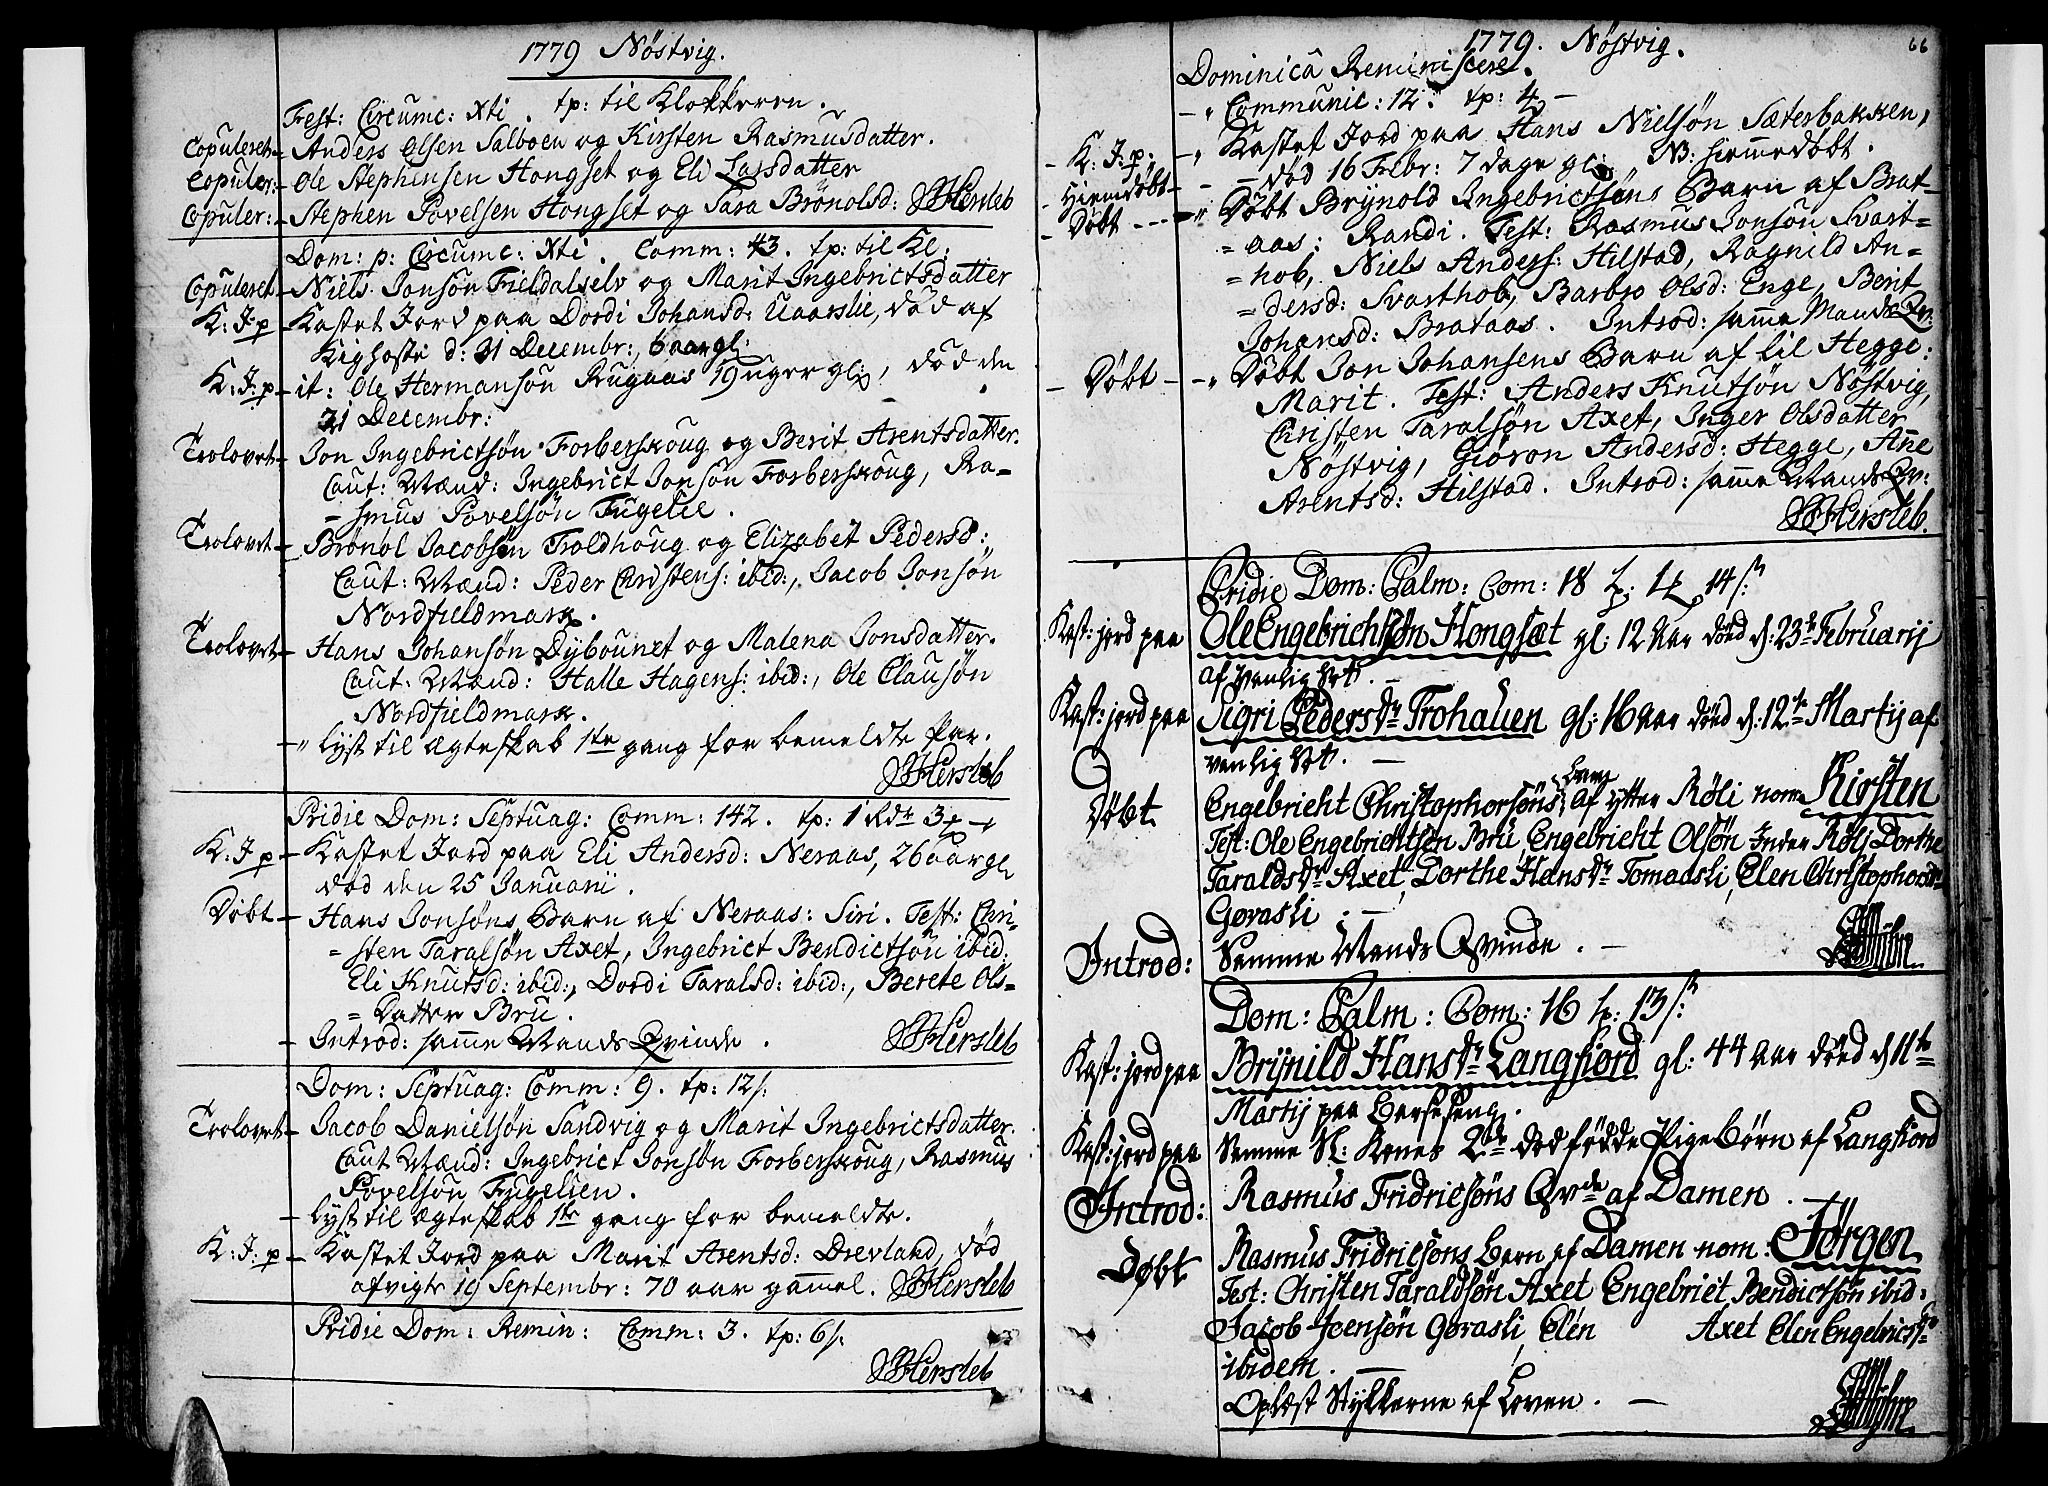 1779 Nöstvig.
Fest: Circumc: Xti. tp: til Klokkeren.
Copuleret - Anders Olsen Salboen og Kirsten Rasmusdatter.
Copuler: - Ole Stephensen Hongset og Eli Larsdatter
Copuler: - Stephen Povelsen Hongset og Sara Brönolsd: Hersleb
Dom: p: Circumc: Xti. Comm: 43. tp: til Kl:
Copuleret - Niels Jonsön Fieldalselv og Marit Ingebrictsdatter
K: J: p - Kastet Jord paa Dordi Johansd: Uaarslie, död af
Kighoste d: 31 Decembr:, 6 aar gl:
K: J: p - it: Ole Hermansön Rugaas 19 uger gl:, död den
21 Decembr:
Trolovet - Jon Ingebrictsön Forberskoug og Berit Arentsdatter.
Caut: Mænd: Ingebrict Jonsön Forberskoug, Ra-
- smus Povelsön Fugelie.
Trolovet - Brönol Jacobsön Troldhoug og Elizabet Pedersd:
Caut: Mænd: Peder Christens: ibid:, Jacob Jonsön
Nordfieldmark.
Trolovet - Hans Johansön Dybounet og Malena Jonsdatter.
Caut: Mænd: Halle Hagens: ibid:, Ole Clausön
Nordfieldmark.
-" Lyst til Ægteskab 1ste gang for bemeldte Par.
Hersleb
Pridie Dom: Septuag: Comm: 142. tp: 1 Rdr 3
K: J: p - Kastet Jord paa Eli Andersd: Neraas, 26 aar gl
död den 25 Januarii.
Döbt - Hans Jonsöns Barn af Neraas: Siri. Test: Chri-
= sten Taralsön Axet, Ingebrict Bendictsön ibid:
Eli Knutsd: ibid:, Dordi Taralsd: ibid:, Berete Ols-
= Datter Bru.
- Introd: samme Mands Qvinde. Hersleb
Dom: Septuag: Comm: 9. tp: 12 s:
Trolovet - Jacob Danielsön Sandvig og Marit Ingebrictsdatter.
Caut Mænd: Ingebrict Jonsön Forberskoug, Rasmus
Povelsön Fugelien.
- Lyst til Ægteskab 1ste gang for bemeldte.
K: J: p - Kastet Jord paa Marit Arentsd: Drevland, död
afvigte 19 Septembr: 70 aar gammel. Hersleb
Pridie Dom: Remin: Comm: 3. tp: 6 s:
Hersleb
1779. Nöstvig. 66
Dominicâ Reminiscere.
-" Communic: 12. tp: 4
- K: J: p. -" Kastet Jord paa Hans Nielsön Sæterbakken,
- Hiemdöbt - - död 16 Febr: 7 dage gl: NB: hiemmedöbt.
- Döbt - - -" Döbt Brynold Ingebrictsöns Barn af Brat-
= aas: Randi. Test: Rasmus Jonsön Svart=
= hob, Niels Anders: Hilstad, Ragnild An=
= dersd: Svarthob, Barbro Olsd: Enge, Berit
Johansd: Brataas. Introd: samme Mands Qv:
- Döbt - -" Döbt Jon Johansens Barn af lil Hegge:
Marit. Test: Anders Knutsön Nöstvig,
Christen Taralsön Axet, Inger Olsdatter
Nöstvig, Giøron Andersd: Hegge, Anne
Arentsd: Hilstad. Introd: samme Mands Qv:
Hersleb.
Pridie Dom: Palm: Com: 18 tp: 14 s:
Kast: jord paa Ole Engebrichtsøn Hongsæt gl: 12 Aar død d: 23de Februarij
af vanlig Sot. -
Kast: jord paa Sigri Pedersdr Trohauen gl: 16 aar død d: 12te Martij af
vanlig Sot. -
Døbt Engebricht Christophorsøns barn af ytter Røli nom: Kirsten
Test: Ole Engebrichtsen Bru, Engebricht Olsøn Inder Røli, Dorthe
Taraldsdr Axet, Dorthe Hansdr Tomaasli, Elen Christophorsdr
Gøvasli. -
Introd: Samme Mands Qvinde. -
Dom: Palm: Com: 16 tp: 13 s:
Kast: jord paa Brynild Hansdr Langfiord gl: 44 Aar død d 11te
Martij paa Barselseng.
Kast: jord paa Samme Sl: Kones 2de dødfødde Pige Børn af Langfiord
Introd: Rasmus Fridricsøns Qvde af Damen.
Døbt Rasmus Fridricsøns Barn af Damen nom: Jørgen
Test: Christen Taraldsøn Axet Engebrict Bendictsøn ibid:
Jacob Joensøn Gøvasli, Elen Axet Elen Engebricsdr
ibidem. -
Oplæst Stykkerne af Loven. -